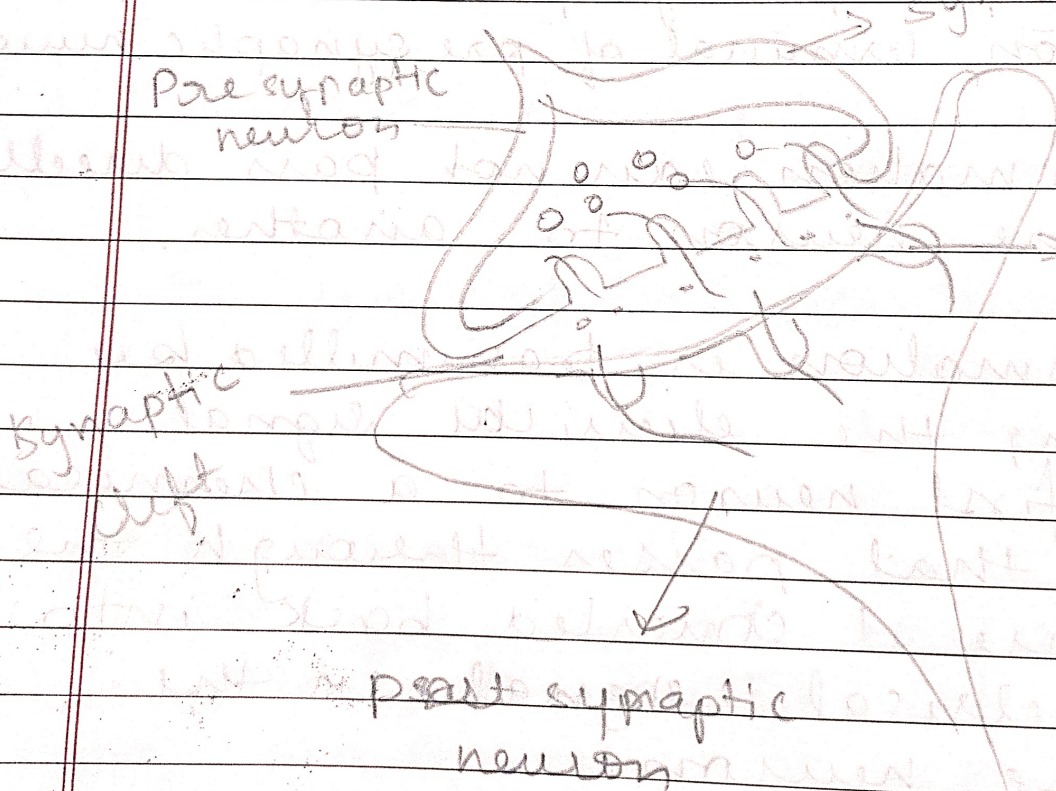 Presynaptic
neuron
synaptic
cleft
post synaptic
neuron